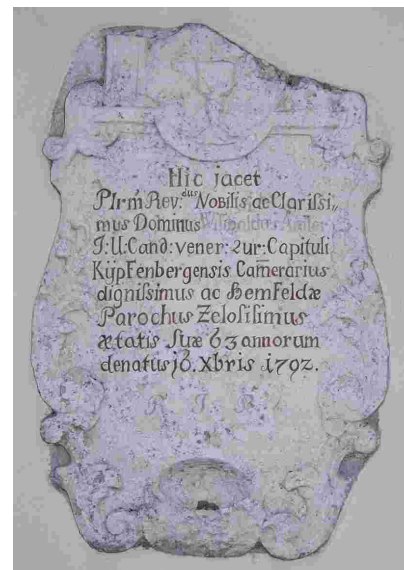 Hic jacet
Plrm̃ Rev:dus Nobilis ac Clarissi„
mus Dominus
J: U: Cand: vener: Rur: Capituli
KüpFenbergensis Cam̃erarius
dignissimus ac HemFeldæ
Parochus Zelosissimus
ætatis Suæ 63 annorum
denatus 16. Xbris 1792.
R. I. P.